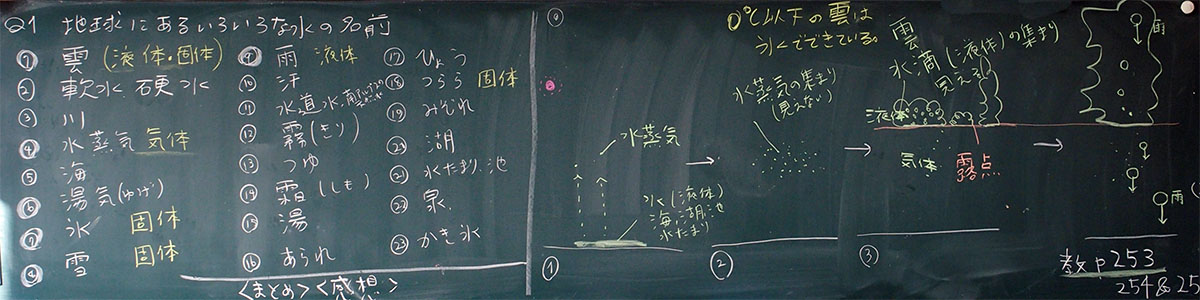 Q1 地球にあるいろいろな水の名前
① 雲 (液体・固体)
② 軟水 硬水
③ 川
④ 水蒸気 気体
⑤ 海
⑥ 湯気(ゆげ)
⑦ 氷 固体
⑧ 雪 固体
⑨ 雨 液体
⑩ 汗
⑪ 水道水
⑫ 霧(きり)
⑬ つゆ
⑭ 霜(しも)
⑮ 湯
⑯ あられ
⑰ ひょう
⑱ つらら 固体
⑲ みぞれ
⑳ 湖
㉑ 水たまり、池
㉒ 泉
㉓ かき氷
<まとめ><感想>
水蒸気
水(液体)
海、湖、池
水たまり
①
水蒸気の集まり
(見えない)
②
0℃以下の雲は
氷でできている。
雲
水滴(液体)の集まり
見える
液体
気体
露点
③
雨
雨
教p253
254&25